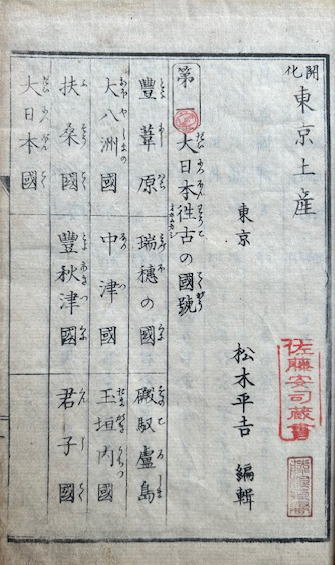 開化 東京土產
東京 松木平吉 編輯
佐藤安司蔵書
第一 大日本徃古の國號
豐葦原 瑞穂の國 磤馭盧島
大八洲國 中津國 玉垣内國
扶桑國 豐秋津國 君子國
大日本國